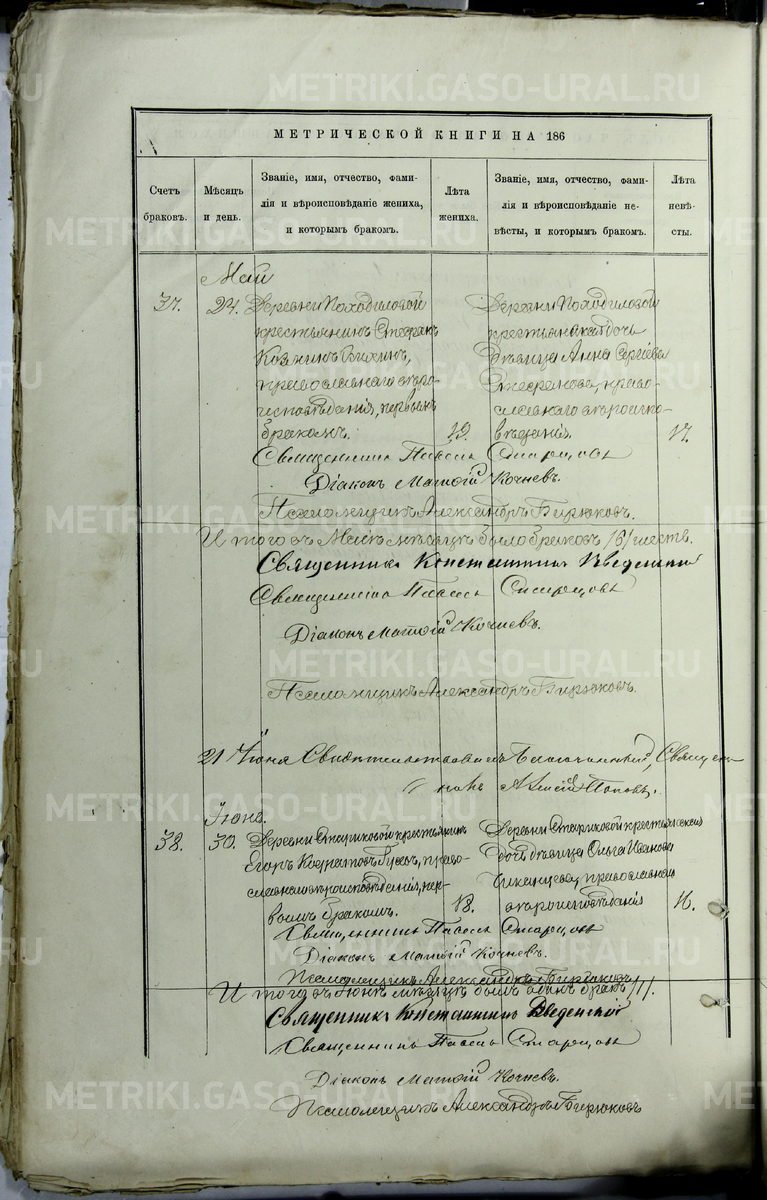 METRIKI.GASO-URAL.RU
МЕТРИЧЕСКОЙ КНИГИ НА 186
Счетъ браковъ.
Мѣсяцъ и день.
Званіе, имя, отчество, фами-
лія и вѣроисповѣданіе жениха,
и которымъ бракомъ.
Лѣта жениха.
Званіе, имя, отчество, фами-
лія и вѣроисповѣданіе не-
вѣсты, и которымъ бракомъ.
Лѣта невѣ-
сты.
Май
37.
24.
Деревни Походиловой
крестьянинъ Стефанъ
православнаго вѣро-
исповѣданія, первымъ
бракомъ.
19.
Деревни Походиловой
крестьянская дочь
дѣвица Анна Сергѣева
право-
славнаго вѣроиспо-
вѣданія.
17.
Священникъ Павелъ Старцовъ
Діаконъ Матѳій Кочневъ.
Псаломщикъ Александръ Бирюковъ.
Итого въ Маѣ мѣсяцѣ было браковъ /6/ шесть.
Священникъ Константинъ Введенскій
Священникъ Павелъ Старцовъ
Діаконъ Матѳій Кочневъ.
Псаломщикъ Александръ Бирюковъ.
21 Іюня Свидѣтельствовалъ Благочинный, Священ-
никъ Алексій Поповъ.
Іюнь.
38.
30.
Деревни Стариковой крестьянинъ
Егоръ Гусевъ, право-
славнаго вѣроисповѣданія, пер-
вымъ бракомъ.
18.
Деревни Стариковой крестьянская
дочь дѣвица Ольга Иванова
православнаго
вѣроисповѣданія
16.
Священникъ Павелъ Старцовъ
Діаконъ Матѳій Кочневъ.
Псаломщикъ Александръ Бирюковъ.
Итого въ Іюнѣ мѣсяцѣ былъ одинъ бракъ /1/.
Священникъ Константинъ Введенскій
Священникъ Павелъ Старцовъ
Діаконъ Матѳій Кочневъ.
Псаломщикъ Александръ Бирюковъ